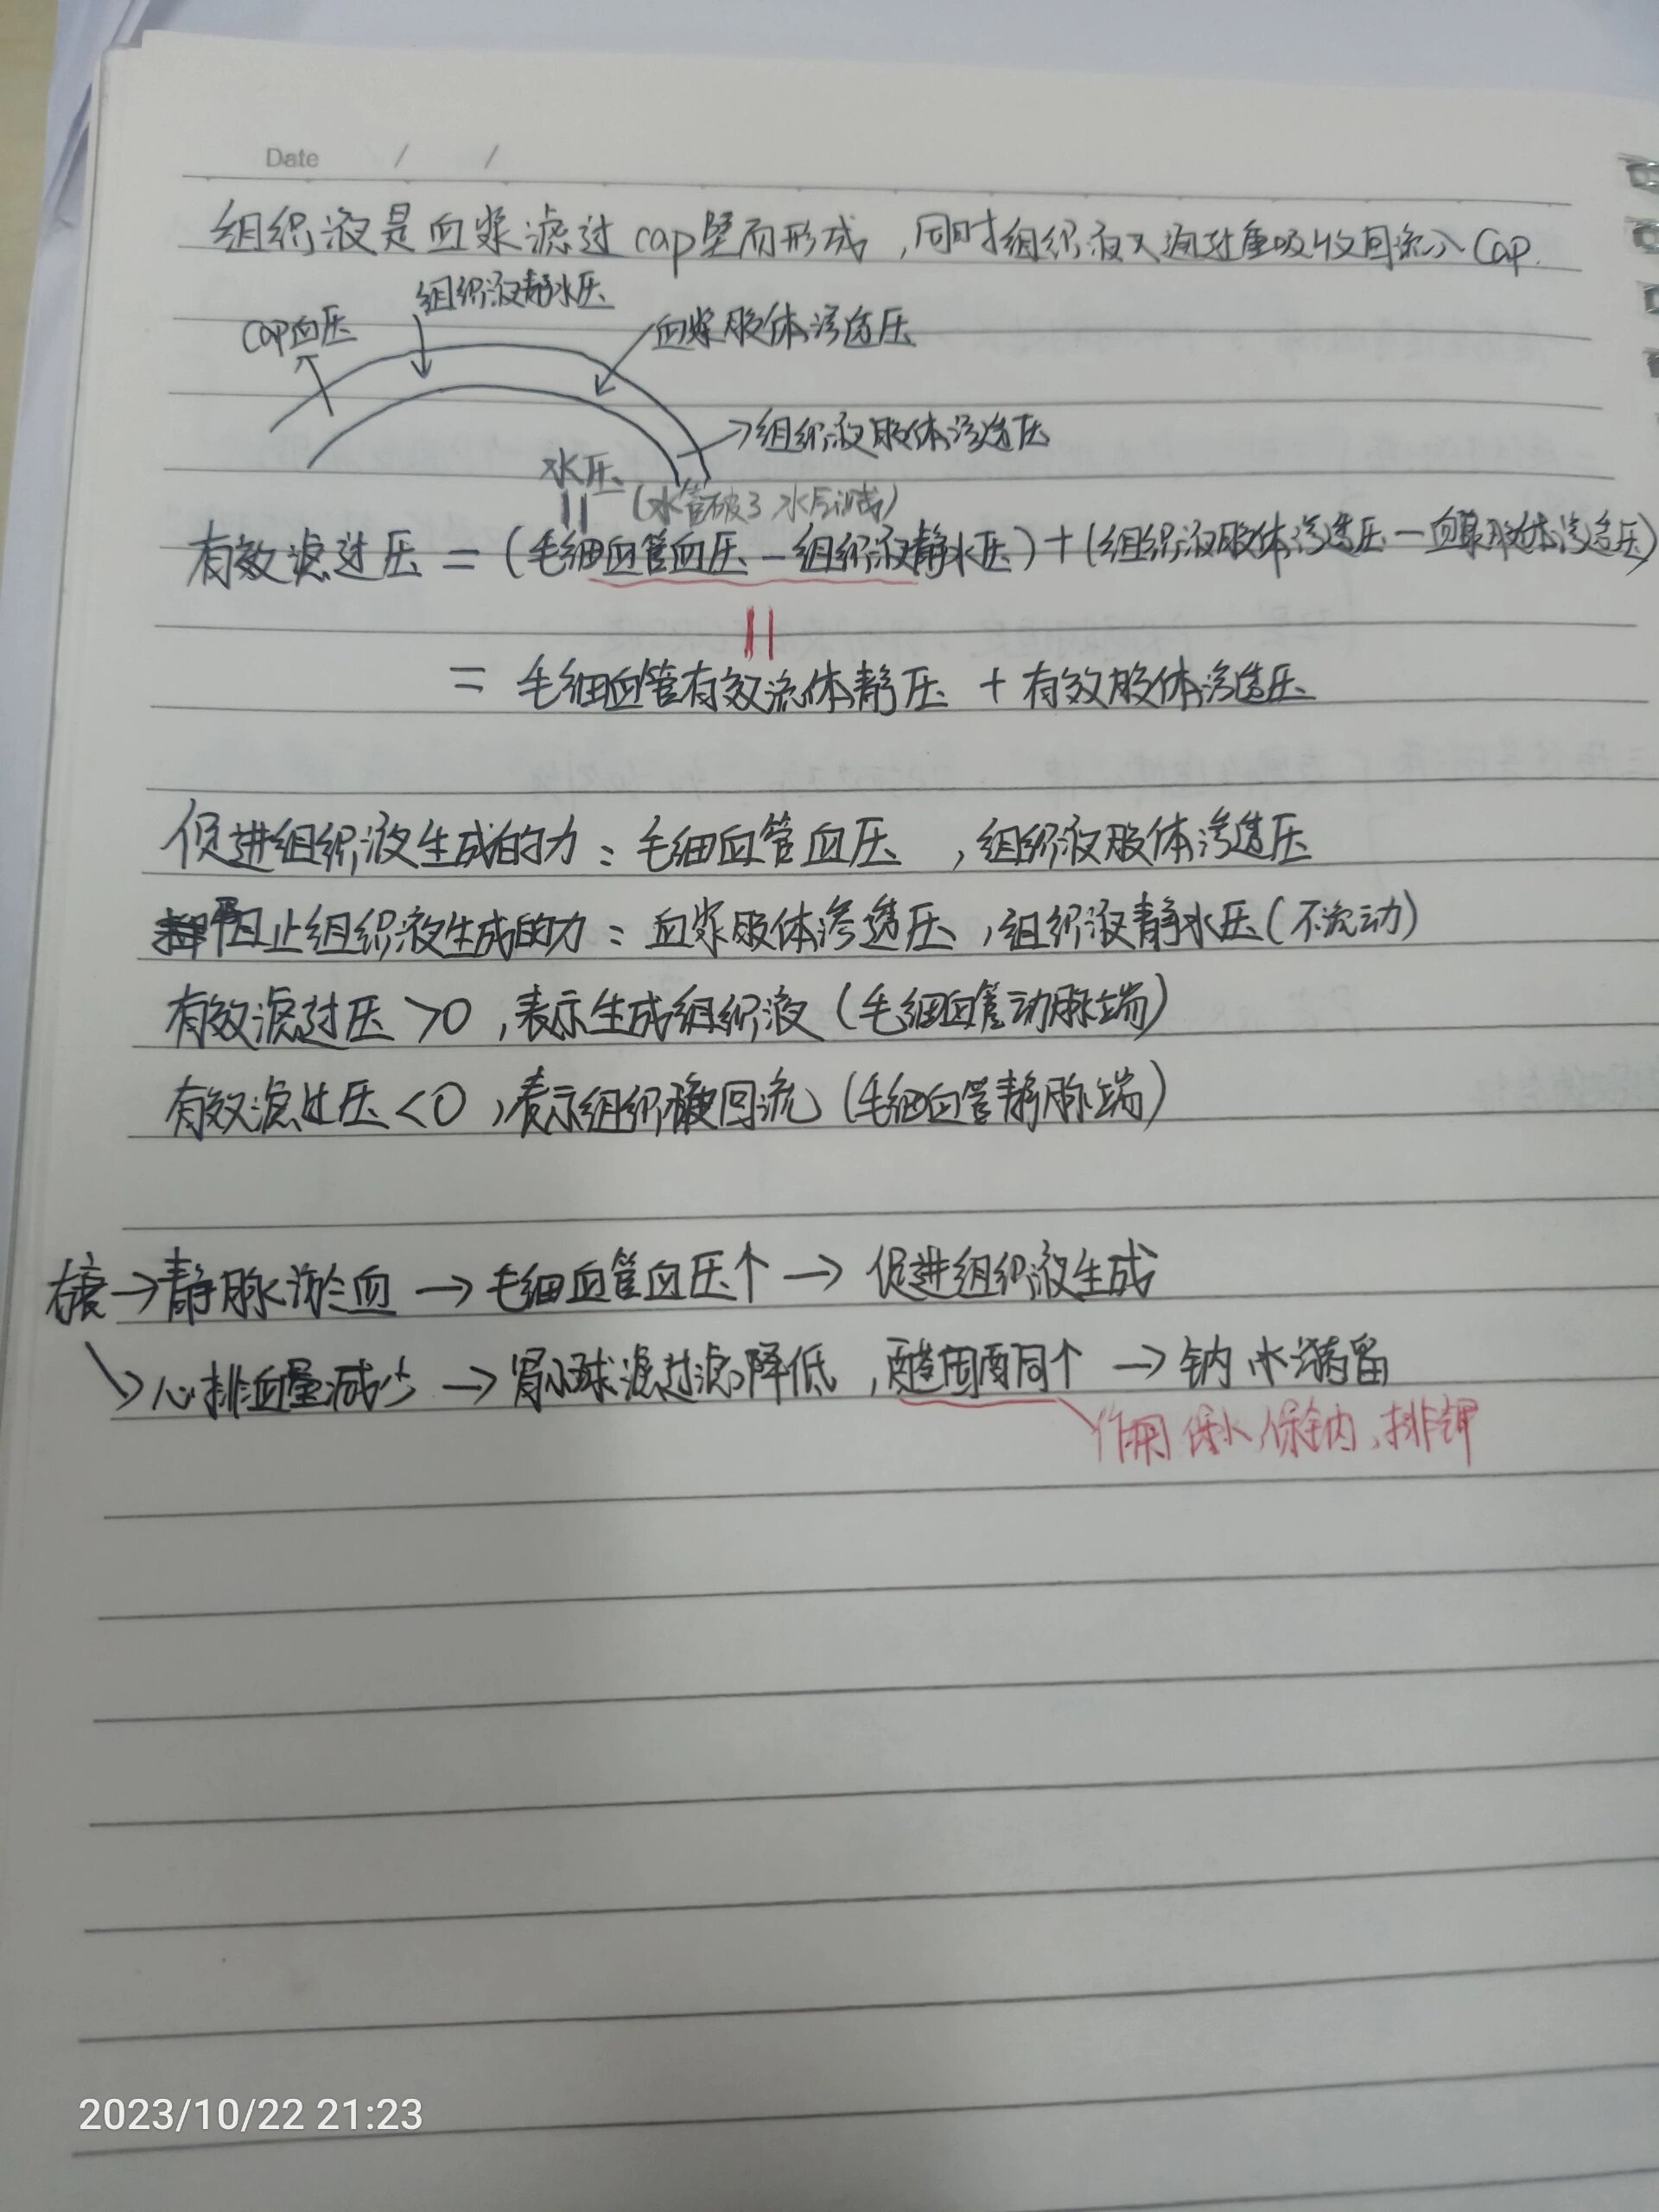 Date / /
组织液是血浆滤过cap壁而形成,同时组织液又通过重吸收回流入Cap.
组织液静水压
cap血压
血浆胶体渗透压
组织液胶体渗透压
水压
(水管破了 水后减)
有效滤过压=(毛细血管血压-组织液静水压)+(组织液胶体渗透压-血浆胶体渗透压)
=毛细血管有效流体静压+有效胶体渗透压
促进组织液生成的力:毛细血管血压,组织液胶体渗透压
阻止组织液生成的力:血浆胶体渗透压,组织液静水压(不流动)
有效滤过压>0,表示生成组织液(毛细血管动脉端)
有效滤过压<0,表示组织液回流(毛细血管静脉端)
右衰→静脉淤血→毛细血管血压↑→促进组织液生成
↘心排血量减少→肾小球滤过滤降低,醛固酮↑→钠水潴留
作用 保水、保钠、排钾
2023/10/22 21:23